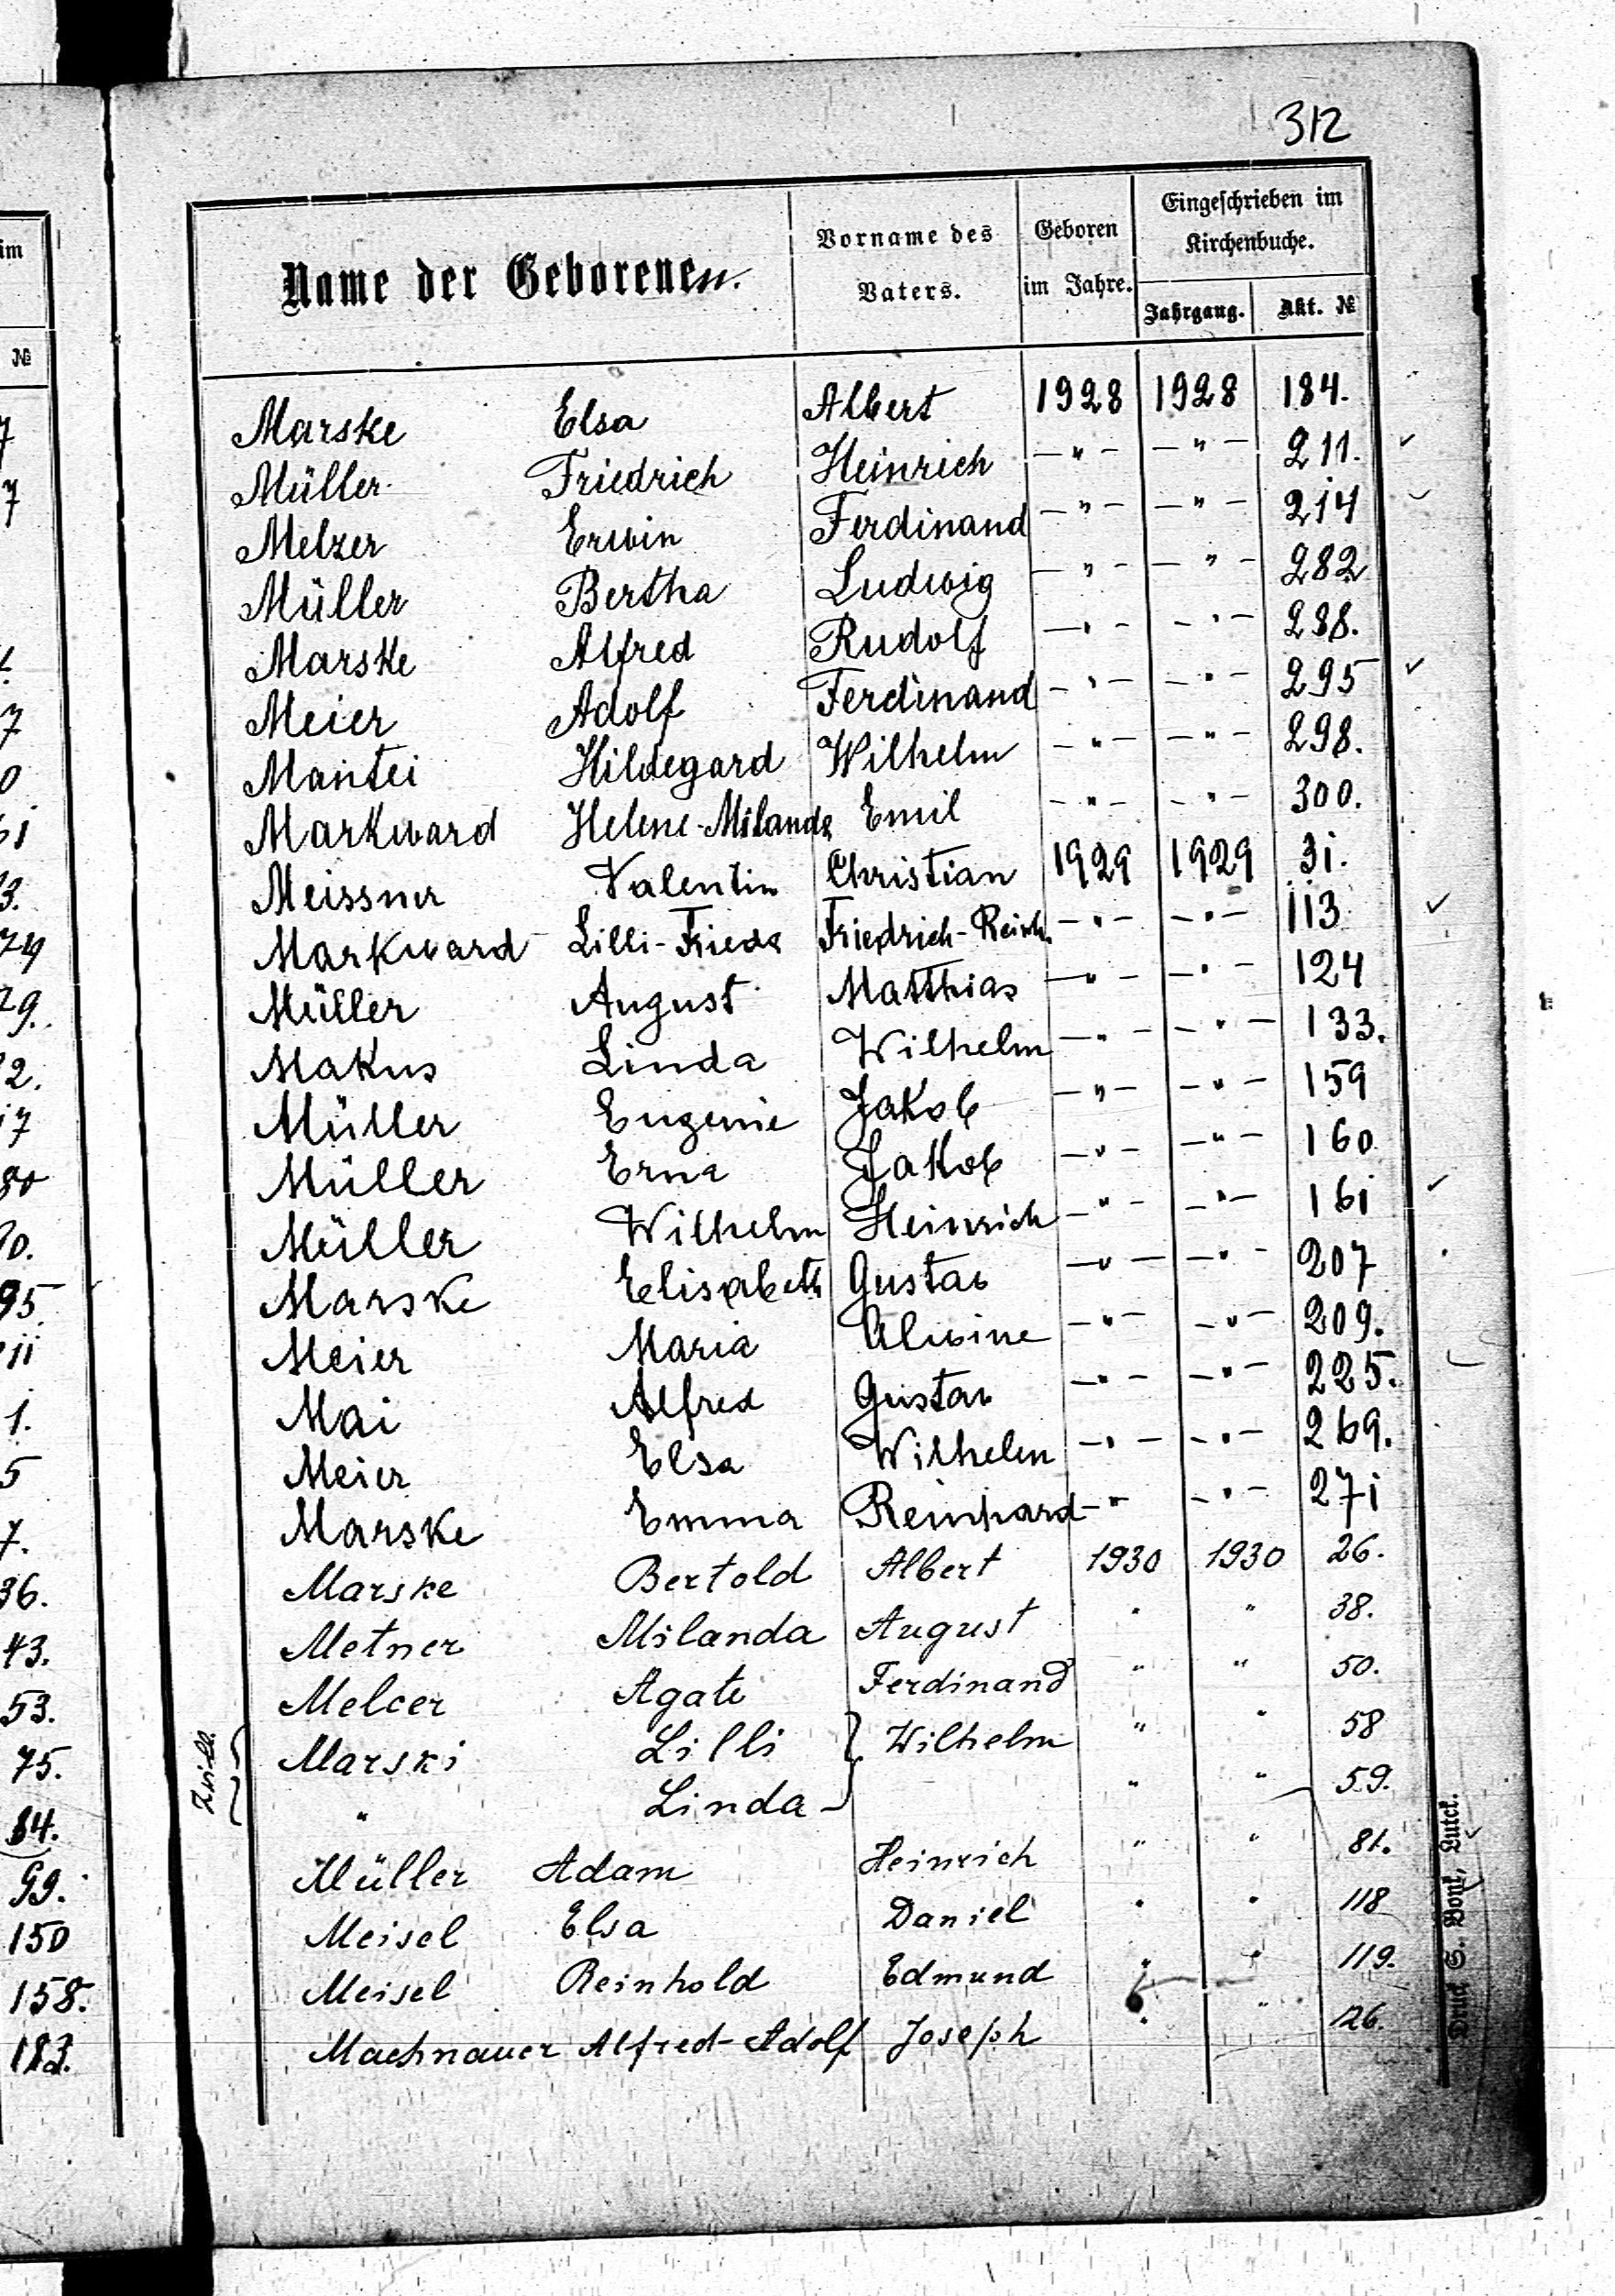 312
Name der Geborenen.
Vorname des Vaters.
Geboren im Jahre.
Eingeschrieben im Kirchenbuche.
Jahrgang. Akt. №
Marske Elsa Albert 1928 1928 184.
Müller Friedrich Heinrich —"— —"— 211.
Melzer Erwin Ferdinand —"— —"— 214
Müller Bertha Ludwig —"— —"— 282
Marske Alfred Rudolf —"— —"— 288.
Meier Adolf Ferdinand —"— —"— 295
Mantei Hildegard Wilhelm —"— —"— 298.
Markward Helene-Milanda Emil —"— —"— 300.
Meissner Valentin Christian 1929 1929 31.
Markward Lilli-Frieda Friedrich- —"— —"— 113
Müller August Matthias —"— —"— 124
Makus Linda Wilhelm —"— —"— 133.
Müller Eugenie Jakob —"— —"— 159
Müller Erna Jakob —"— —"— 160
Müller Wilhelm Heinrich —"— —"— 161
Marske Elisabeth Gustav —"— —"— 207
Meier Maria Alwine —"— —"— 209.
Mai Alfred Gustav —"— —"— 225.
Meier Elsa Wilhelm —"— —"— 269.
Marske Emma Reinhard —"— —"— 271
Marske Bertold Albert 1930 1930 26.
Metner Milanda August " " 38.
Melcer Agate Ferdinand " " 50.
Zwill. { Marski Lilli } Wilhelm " " 58
" Linda " " 59.
Müller Adam Heinrich " " 81.
Meisel Elsa Daniel " " 118
Meisel Reinhold Edmund " " 119.
Machnauer Alfred-Adolf Joseph " " 126.
im
№
7
7
7
0
29.
2.
17
80
95
11
1.
5
7.
36.
43.
53.
75.
84.
99.
150
158.
183.